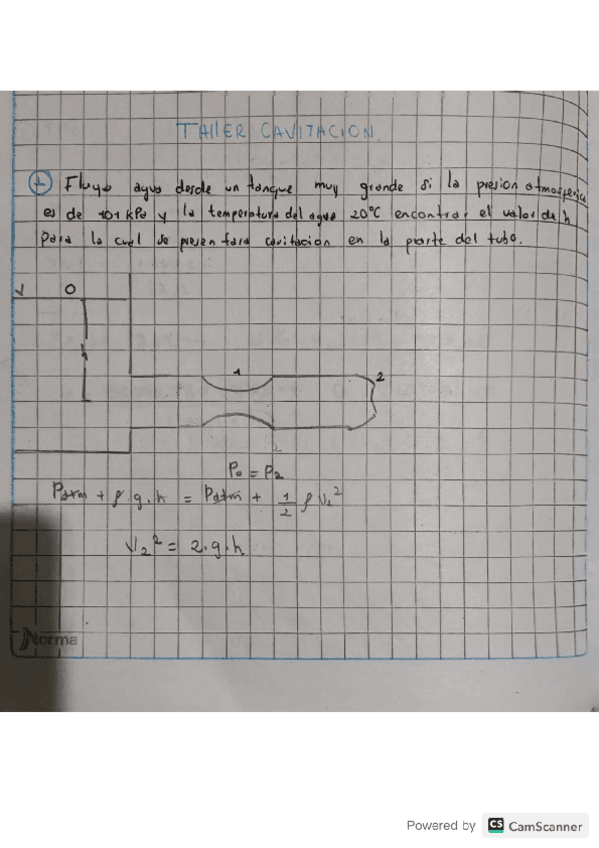 TAllER CAVITACION
1 Fluye agua desde un tanque muy grande si la presion atmosferica
es de 101 kPa y la temperatura del agua 20°C encontrar el valor de h
Para la cual se presentara cavitacion en la parte del tubo.
0
h
1
2
P0 = P2
Patm + ρ.g.h = Patm + 1/2 ρ V2²
V2² = 2.g.h
Norma
Powered by CS CamScanner